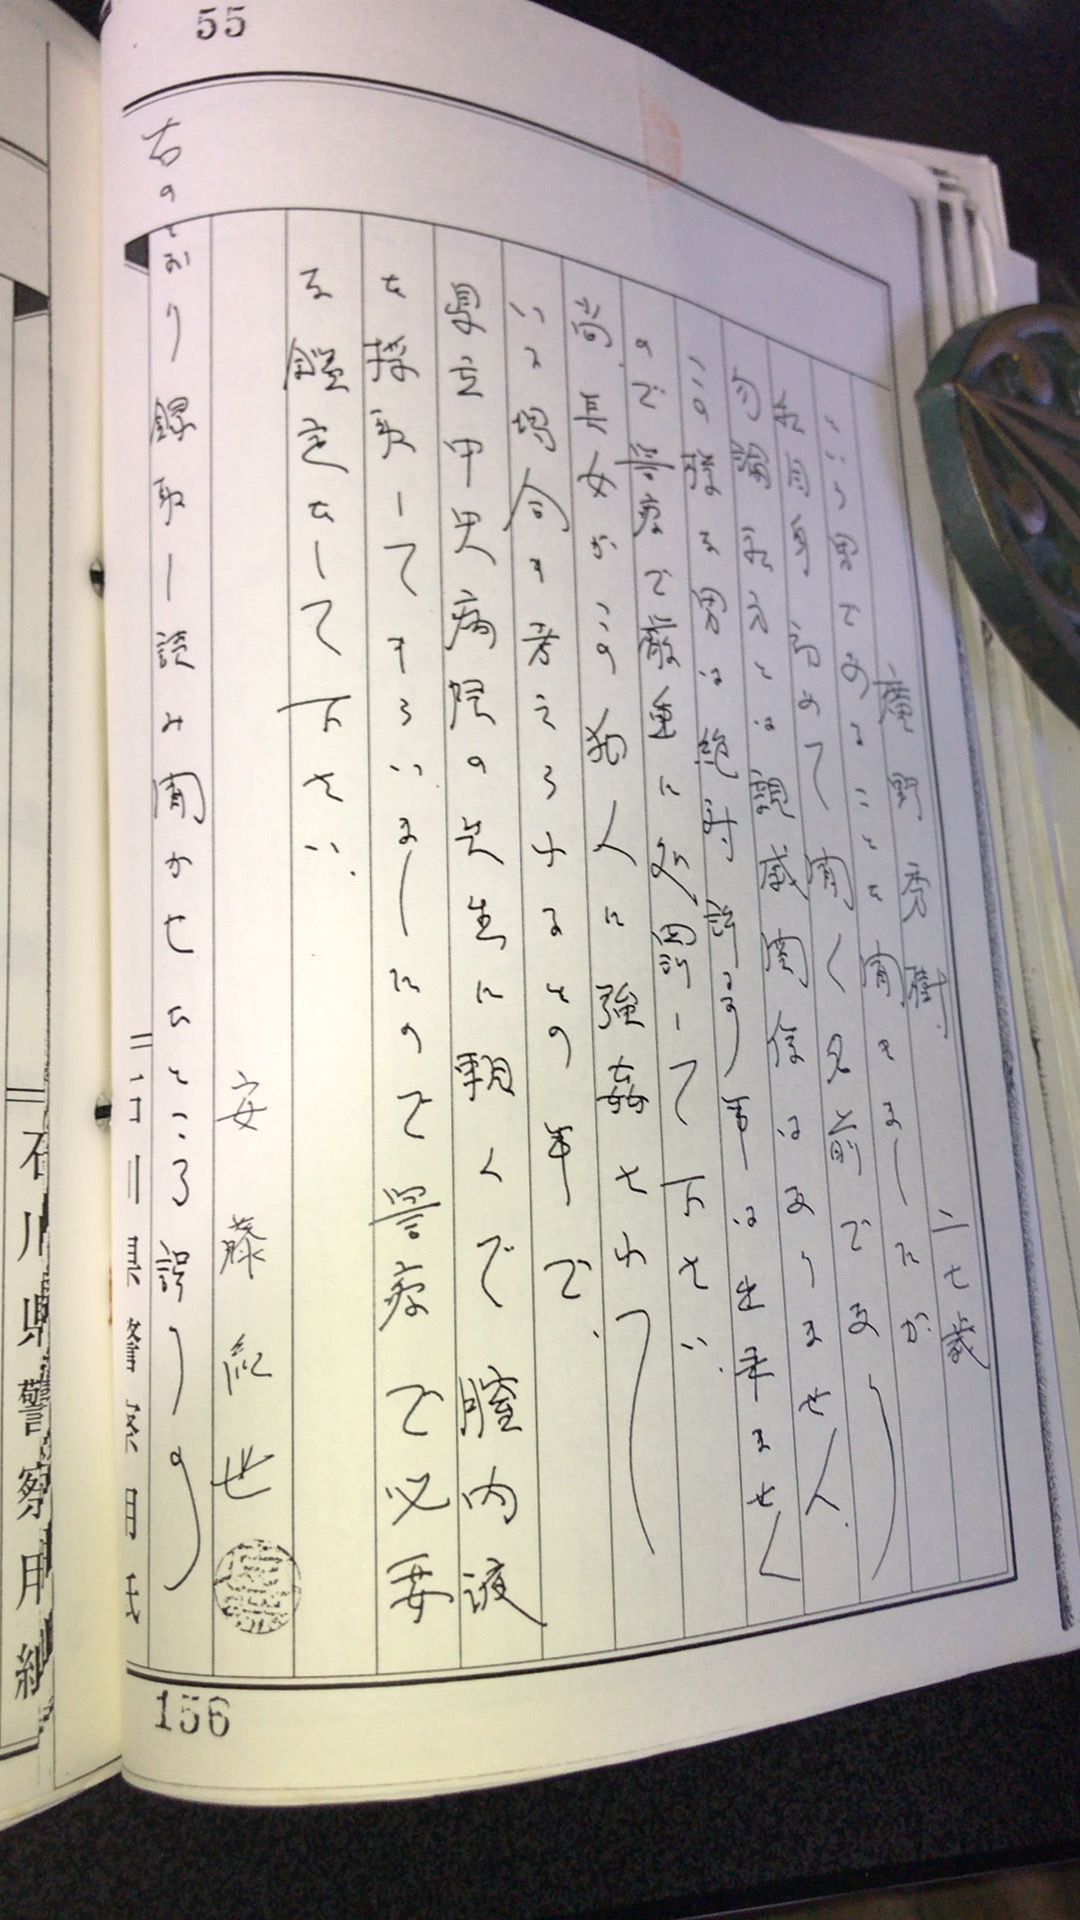 55
廣野秀樹 二七歳
という男であることを聞きましたが
私自身初めて聞く名前であり
勿論私方とは親戚関係はありません。
この様な男は絶対許す事は出来ません
ので警察で厳重に処罰して下さい。
尚、長女がこの犯人に強姦され
いる場合も考えられるその事で、
県立中央病院の先生に親く で膣内液
を採取してもらいましたので警察で必要
な鑑定をして下さい。
安藤紀世
右のとおり録取し読み聞かせたところ誤りの
石川県警察
156
石川県警察用紙